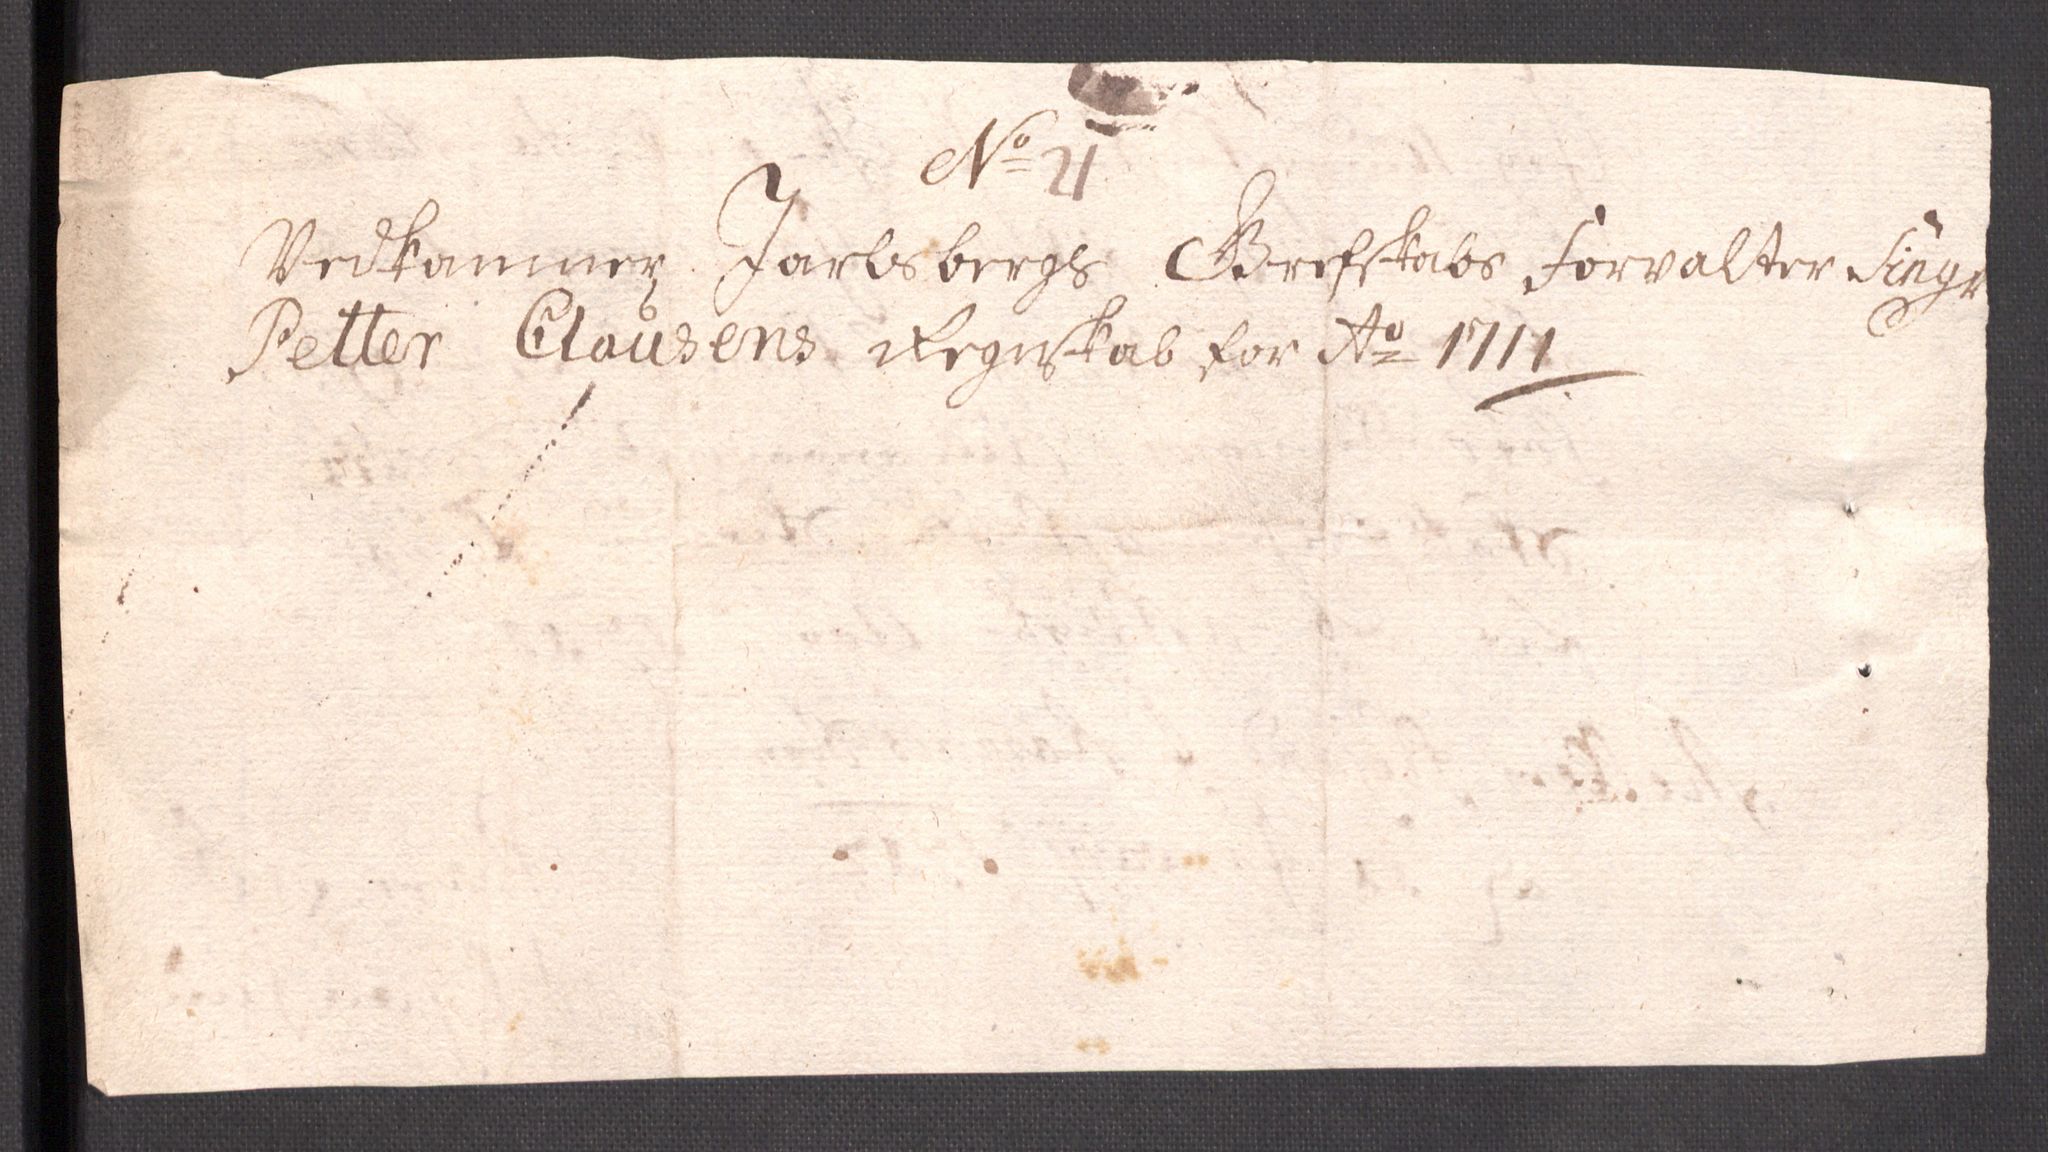 No 21
Vedkommer Jarlsbergs Grefskabs Forvalter Singr
Petter Clausens Regnskab for Ao 1711